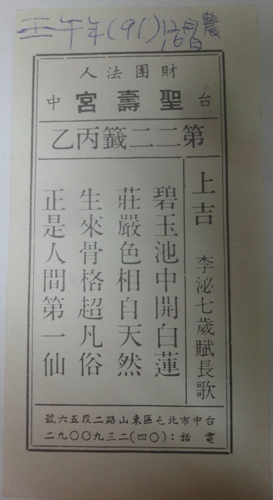 壬午年(91)
財團法人
台 聖壽宮 中
第二二籤丙乙
上吉 李泌七歲賦長歌
碧玉池中開白蓮
莊嚴色相自天然
生來骨格超凡俗
正是人間第一仙
台中市北屯區東山路二段五六號
電話:(〇四)二三九〇〇九二